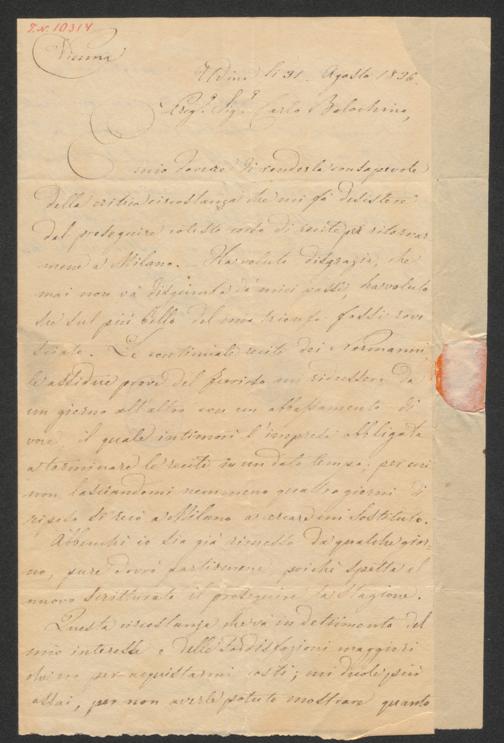 I. N. 10314
Vienna
Udine li 31. Agosto 1836.
Preg.e Sig.r Carlo Balochino,
mio dovere di renderla consapevole
della critica circostanza che mi fa desistere
dal proseguire cotesto corso di recite per ritornar
mene a Milano. Ha voluto disgrazia, che
mai non va disgiunta da' miei passi, ha voluto
che sul più bello del mio trionfo fossi rove
sciato. Le continuate recite dei Normanni
le assidue prove del Furioso mi ridussero da
un giorno all'altro con un abbassamento di
voce, il quale intimorì l'impresa obbligata
a terminare le recite in un dato tempo; per cui
non lasciandomi nemmeno quattro giorni di
riposo si recò a Milano a cercare mi sostituto.
Abbenchè io sia già rimesso da qualche gior-
no, pure dovrò partirmene, poichè spetta al
nuovo scritturato il proseguire la Stagione.
Questa circostanza che va in detrimento del
mio interesse e delle soddisfazioni maggiori
per acquistarmi costì; mi duole più
assai, per non averle potuto mostrare quanto